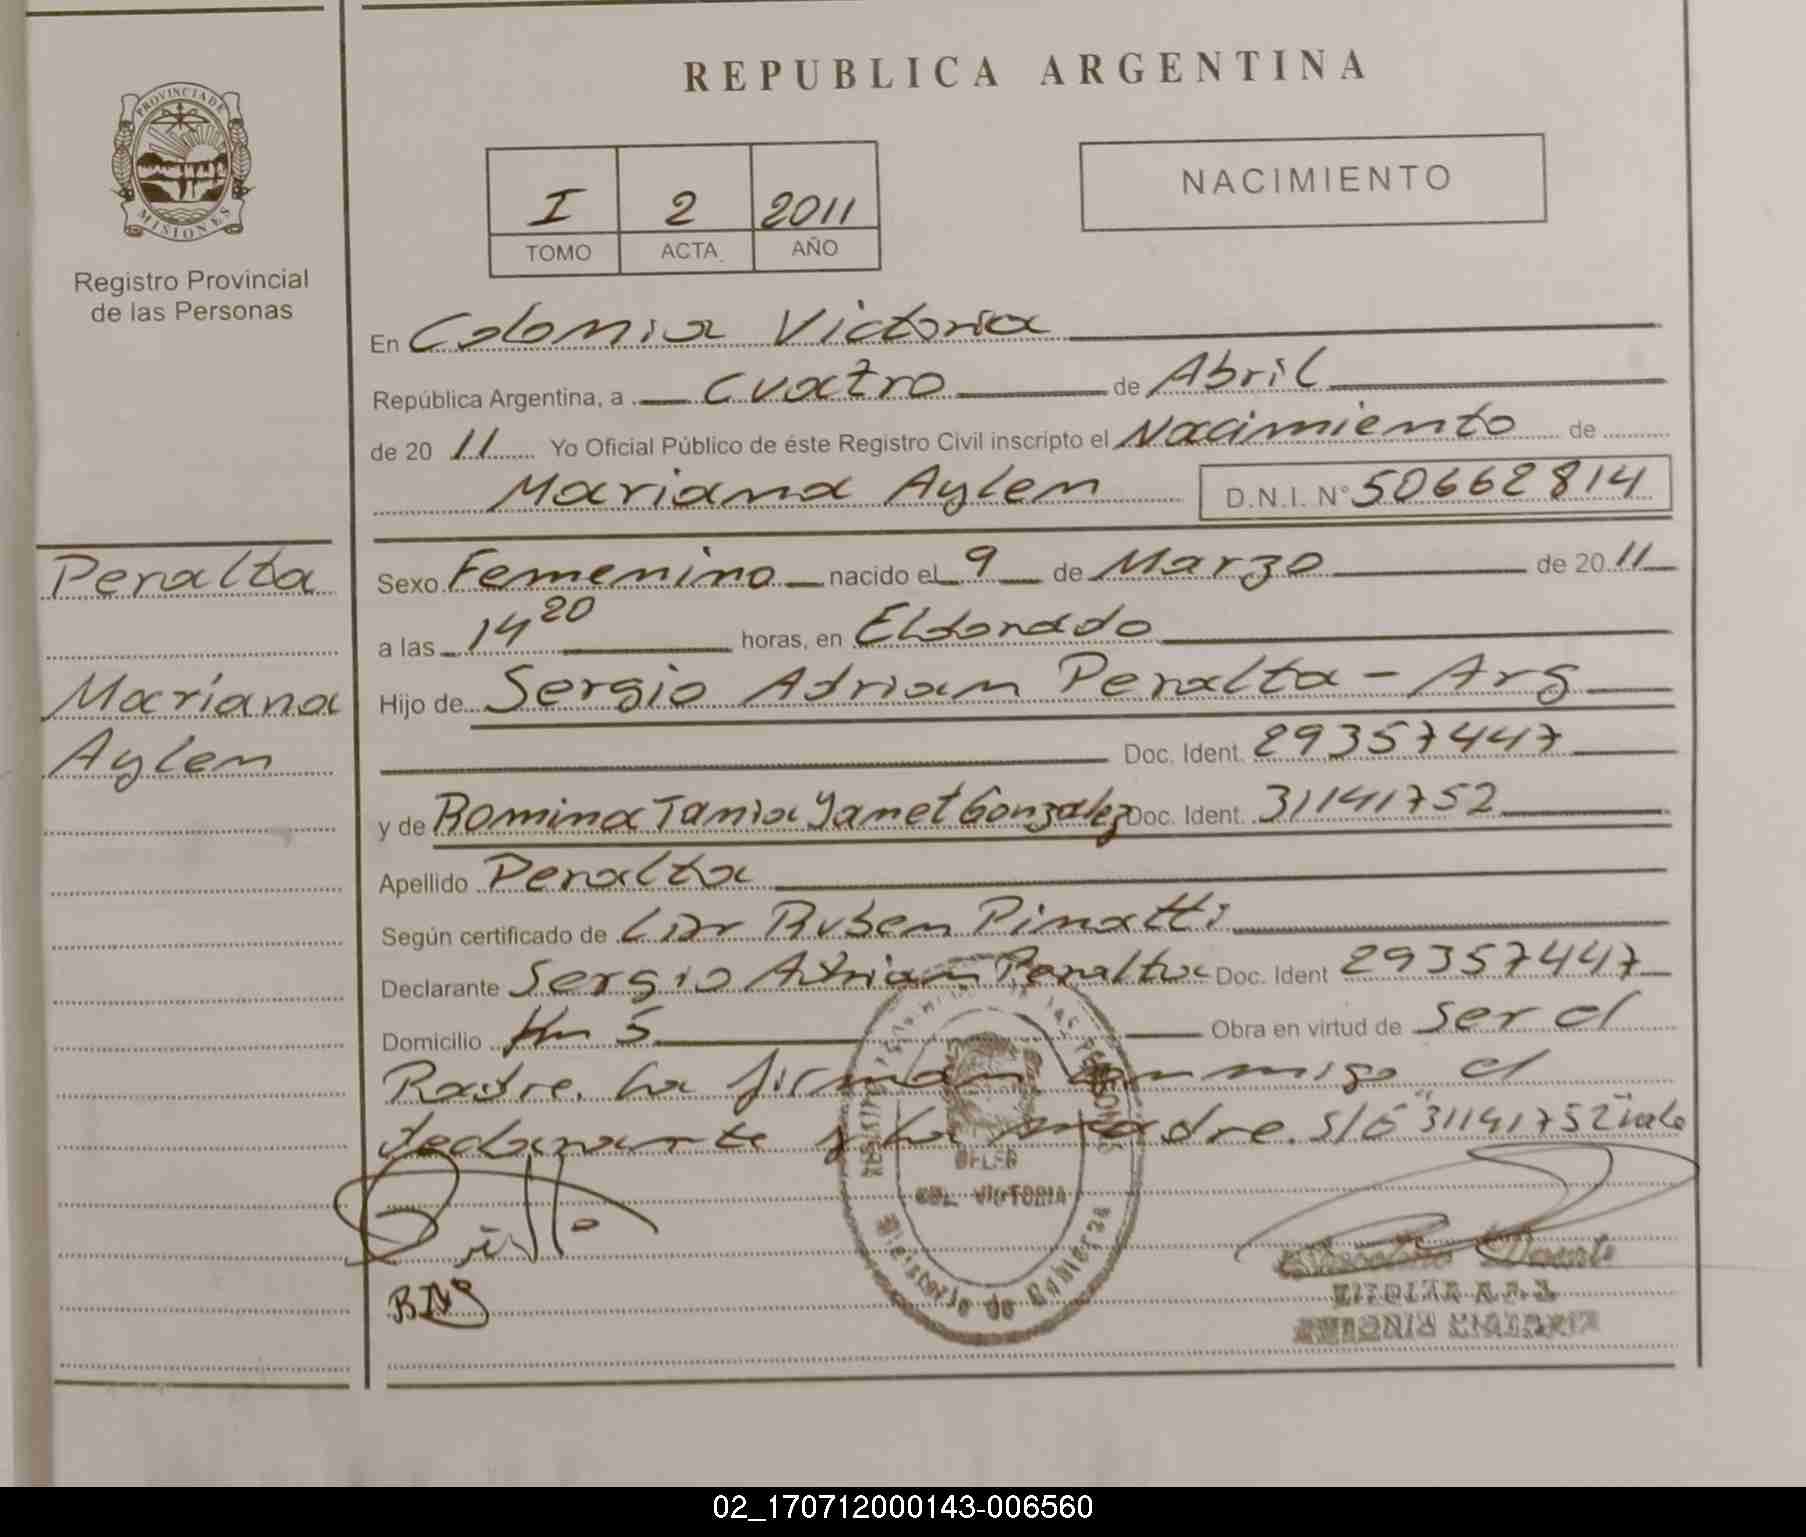 REPUBLICA ARGENTINA
PROVINCIA DE
MISIONES
Registro Provincial
de las Personas
I 2 2011
TOMO ACTA AÑO
NACIMIENTO
En Colonia Victoria
República Argentina, a Cuatro de Abril
de 20 11 Yo Oficial Público de éste Registro Civil inscripto el Nacimiento de
Mariana Aylen D.N.I. N° 50662814
Peralta
Mariana
Aylen
Sexo Femenino nacido el 9 de Marzo de 20 11
a las 14 20 horas, en Eldorado
Hijo de Sergio Adrian Peralta - Arg
Doc. Ident. 29357447
y de Romina Tania Yanet Gonzalez Doc. Ident. 31141752
Apellido Peralta
Según certificado de Ruben Pinatti
Declarante Sergio Adrian Peralta Doc. Ident 29357447
Domicilio Km 5 Obra en virtud de ser el
Padre. La firman conmigo el
declarante y la madre. S/b "31141752" vale
COL. VICTORIA
Ministerio de Gobierno
02_170712000143-006560